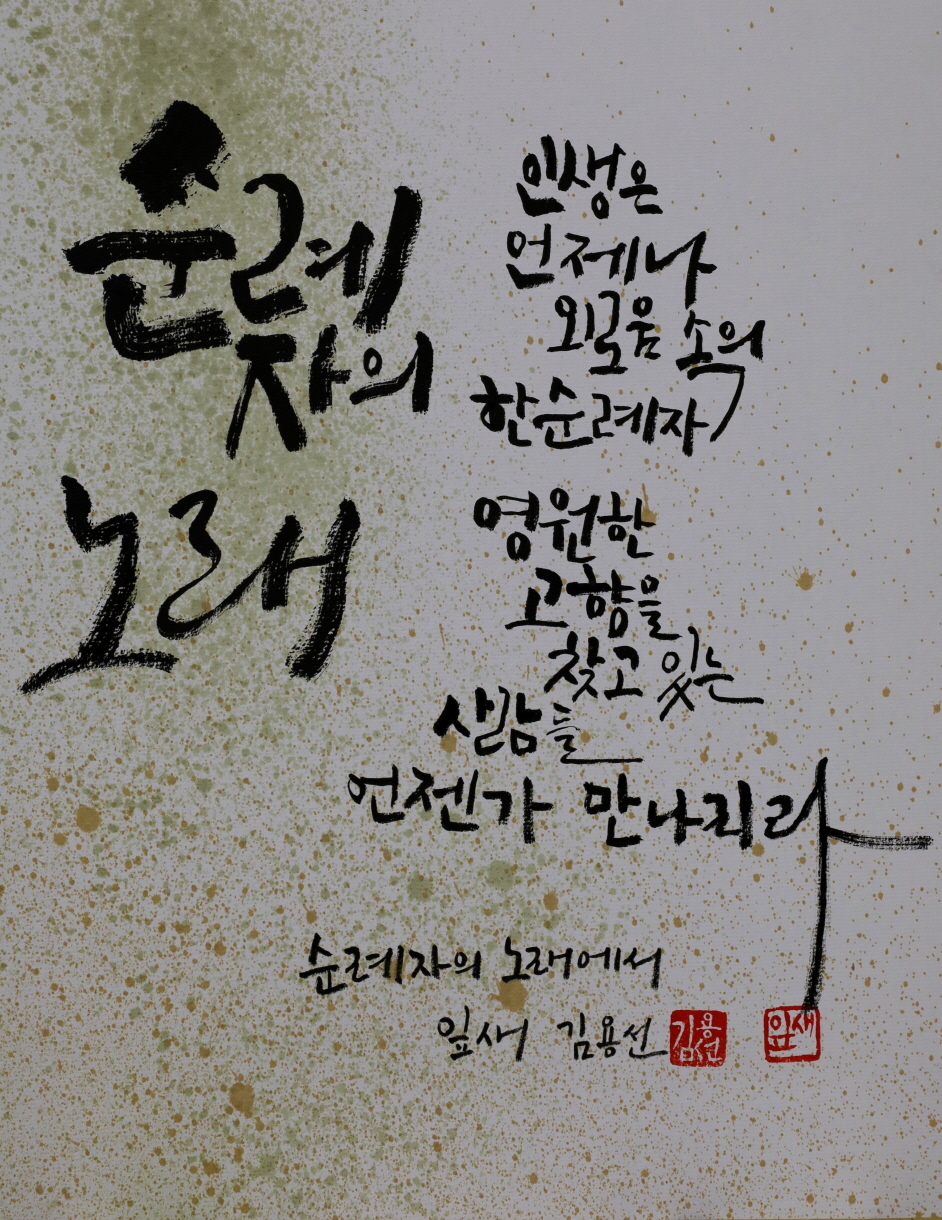 순례
자의
노래
인생은
언제나
외로움 속의
한순례자
영원한
고향을
찾고 있는
사람들
언젠가 만나리라
순례자의 노래에서
잎새 김용선
김용선
잎새